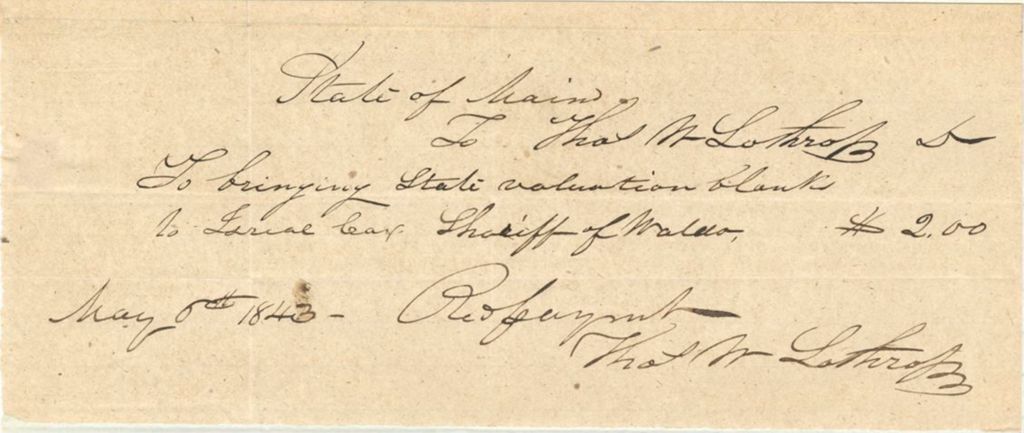 State of Maine
To Thos W Lothrop Dr
To bringing State valuation blanks
to Israel Cox Sheriff of Waldo, $ 2.00
May 8th 1843 - Recd paymt
Thos W Lothrop